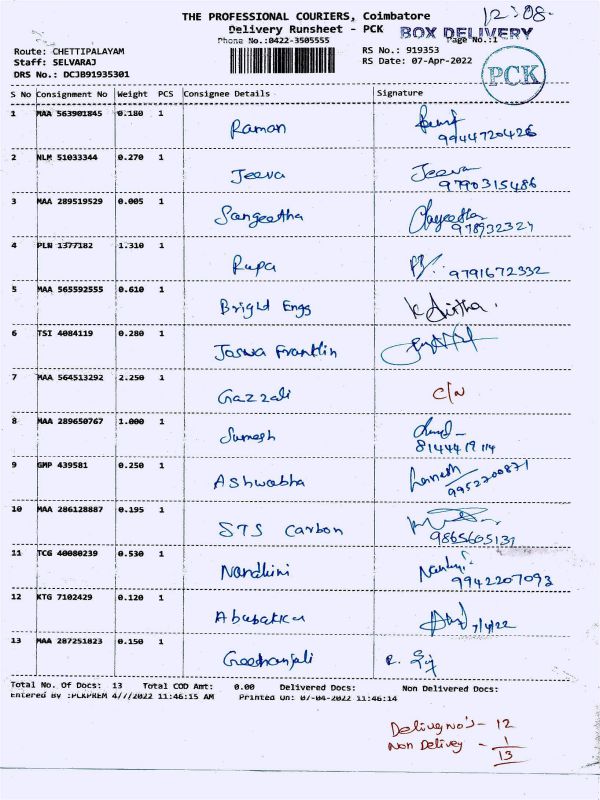 THE PROFESSIONAL COURIERS, Coimbatore
12:08
Delivery Runsheet - PCK
BOX DELIVERY
Phone No.:0422-3505555
Page No.:1
Route: CHETTIPALAYAM
RS No.: 919353
Staff: SELVARAJ
RS Date: 07-Apr-2022
DRS No.: DCJB91935301
PCK
S No Consignment No Weight PCS Consignee Details Signature
1 MAA 563901845 0.180 1 Raman
9944720426
2 NLM 51033344 0.270 1 Jeeva Jeeva
9790315486
3 MAA 289519529 0.005 1 Sangeetha Sangeetha
978932324
4 PLN 1377182 1.310 1 Rupa
9791672332
5 MAA 565592555 0.610 1 Bright Engs
6 TSI 4084119 0.280 1 Joswa Franklin
7 MAA 564513292 2.250 1 Gazzali C/N
8 MAA 289650767 1.000 1 Sumesh
8144419114
9 GMP 439581 0.250 1 Ashwabha
9952700871
10 MAA 286128887 0.195 1 STS Carbon
9865605131
11 TCG 40080239 0.530 1 Nandhini
9942207093
12 KTG 7102429 0.120 1 Abubakkar
7/4/22
13 MAA 287251823 0.150 1 Geethanjali
Total No. Of Docs: 13 Total COD Amt: 0.00 Delivered Docs: Non Delivered Docs:
Entered By :PCKPREM 4/7/2022 11:46:15 AM Printed On: 07-04-2022 11:46:14
Delivey No's - 12
Non Delivey - 1
13